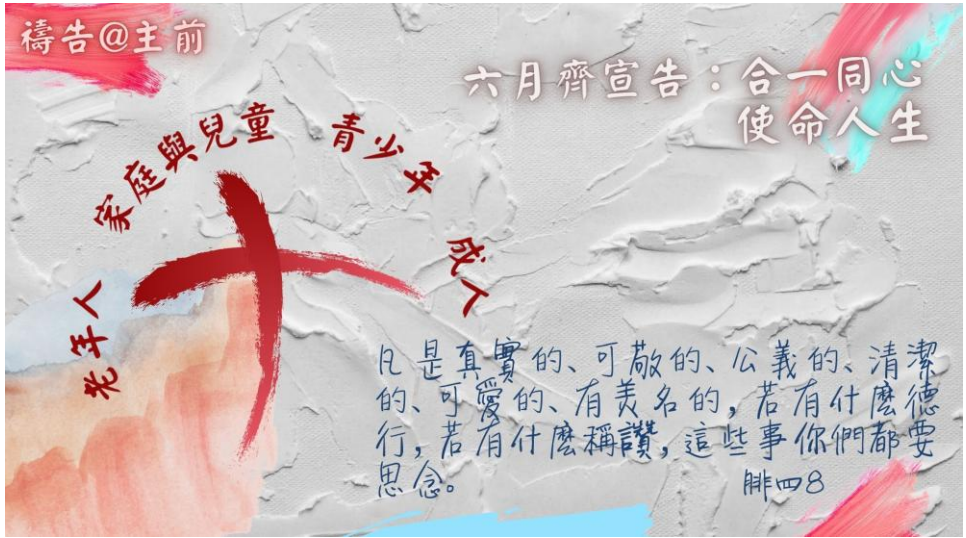 禱告@主前
六月齊宣告：合一同心
使命人生
老年人 家庭與兒童 青少年 成人
凡是真實的、可敬的、公義的、清潔
的、可愛的、有美名的，若有什麼德
行，若有什麼稱讚，這些事你們都要
思念。 腓四8